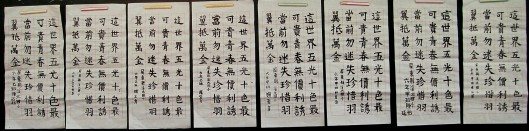 這世界五光十色最
可貴青春無價利誘
當前勿迷失珍惜羽
翼抵萬金
這世界五光十色最
可貴青春無價利誘
當前勿迷失珍惜羽
翼抵萬金
這世界五光十色最
可貴青春無價利誘
當前勿迷失珍惜羽
翼抵萬金
這世界五光十色最
可貴青春無價利誘
當前勿迷失珍惜羽
翼抵萬金
這世界五光十色最
可貴青春無價利誘
當前勿迷失珍惜羽
翼抵萬金
這世界五光十色最
可貴青春無價利誘
當前勿迷失珍惜羽
翼抵萬金
這世界五光十色最
可貴青春無價利誘
當前勿迷失珍惜羽
翼抵萬金
這世界五光十色最
可貴青春無價利誘
當前勿迷失珍惜羽
翼抵萬金